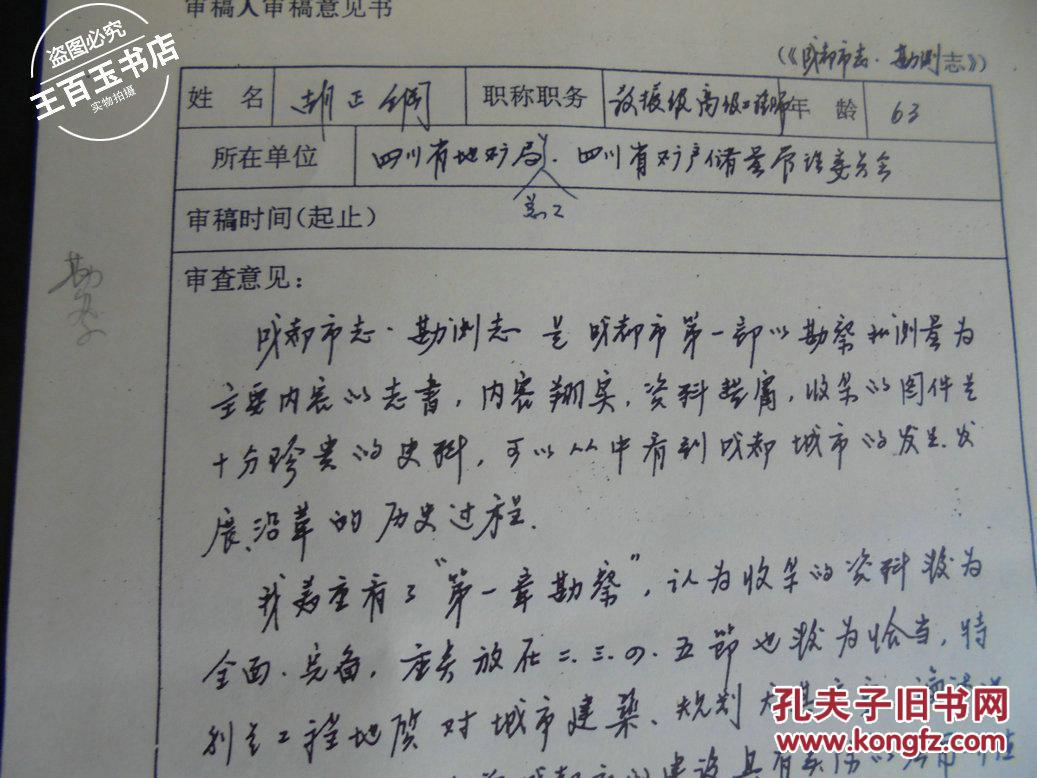 审稿人审稿意见书
(《成都市志·勘测志》)
姓 名 胡正纲 职称职务 教授级高级工程师 年 龄 63
所在单位 四川省地矿局、四川省矿产储量委员会
总工
审稿时间(起止)
勘
审查意见:
成都市志·勘测志是成都市第一部以勘察和测量为
主要内容的志书,内容翔实,资料丰富,收集的图件是
十分珍贵的史料,可以从中看到成都城市的发生、发
展、沿革的历史过程.
我着重看了“第一章勘察”,认为收集的资料较为
全面、完备,重点放在二.三.四.五节也较为恰当,特
别是工程地质对城市建筑、规划
成都市的建设具有
盗图必究
王百玉书店
实物拍摄
孔夫子旧书网
www.kongfz.com